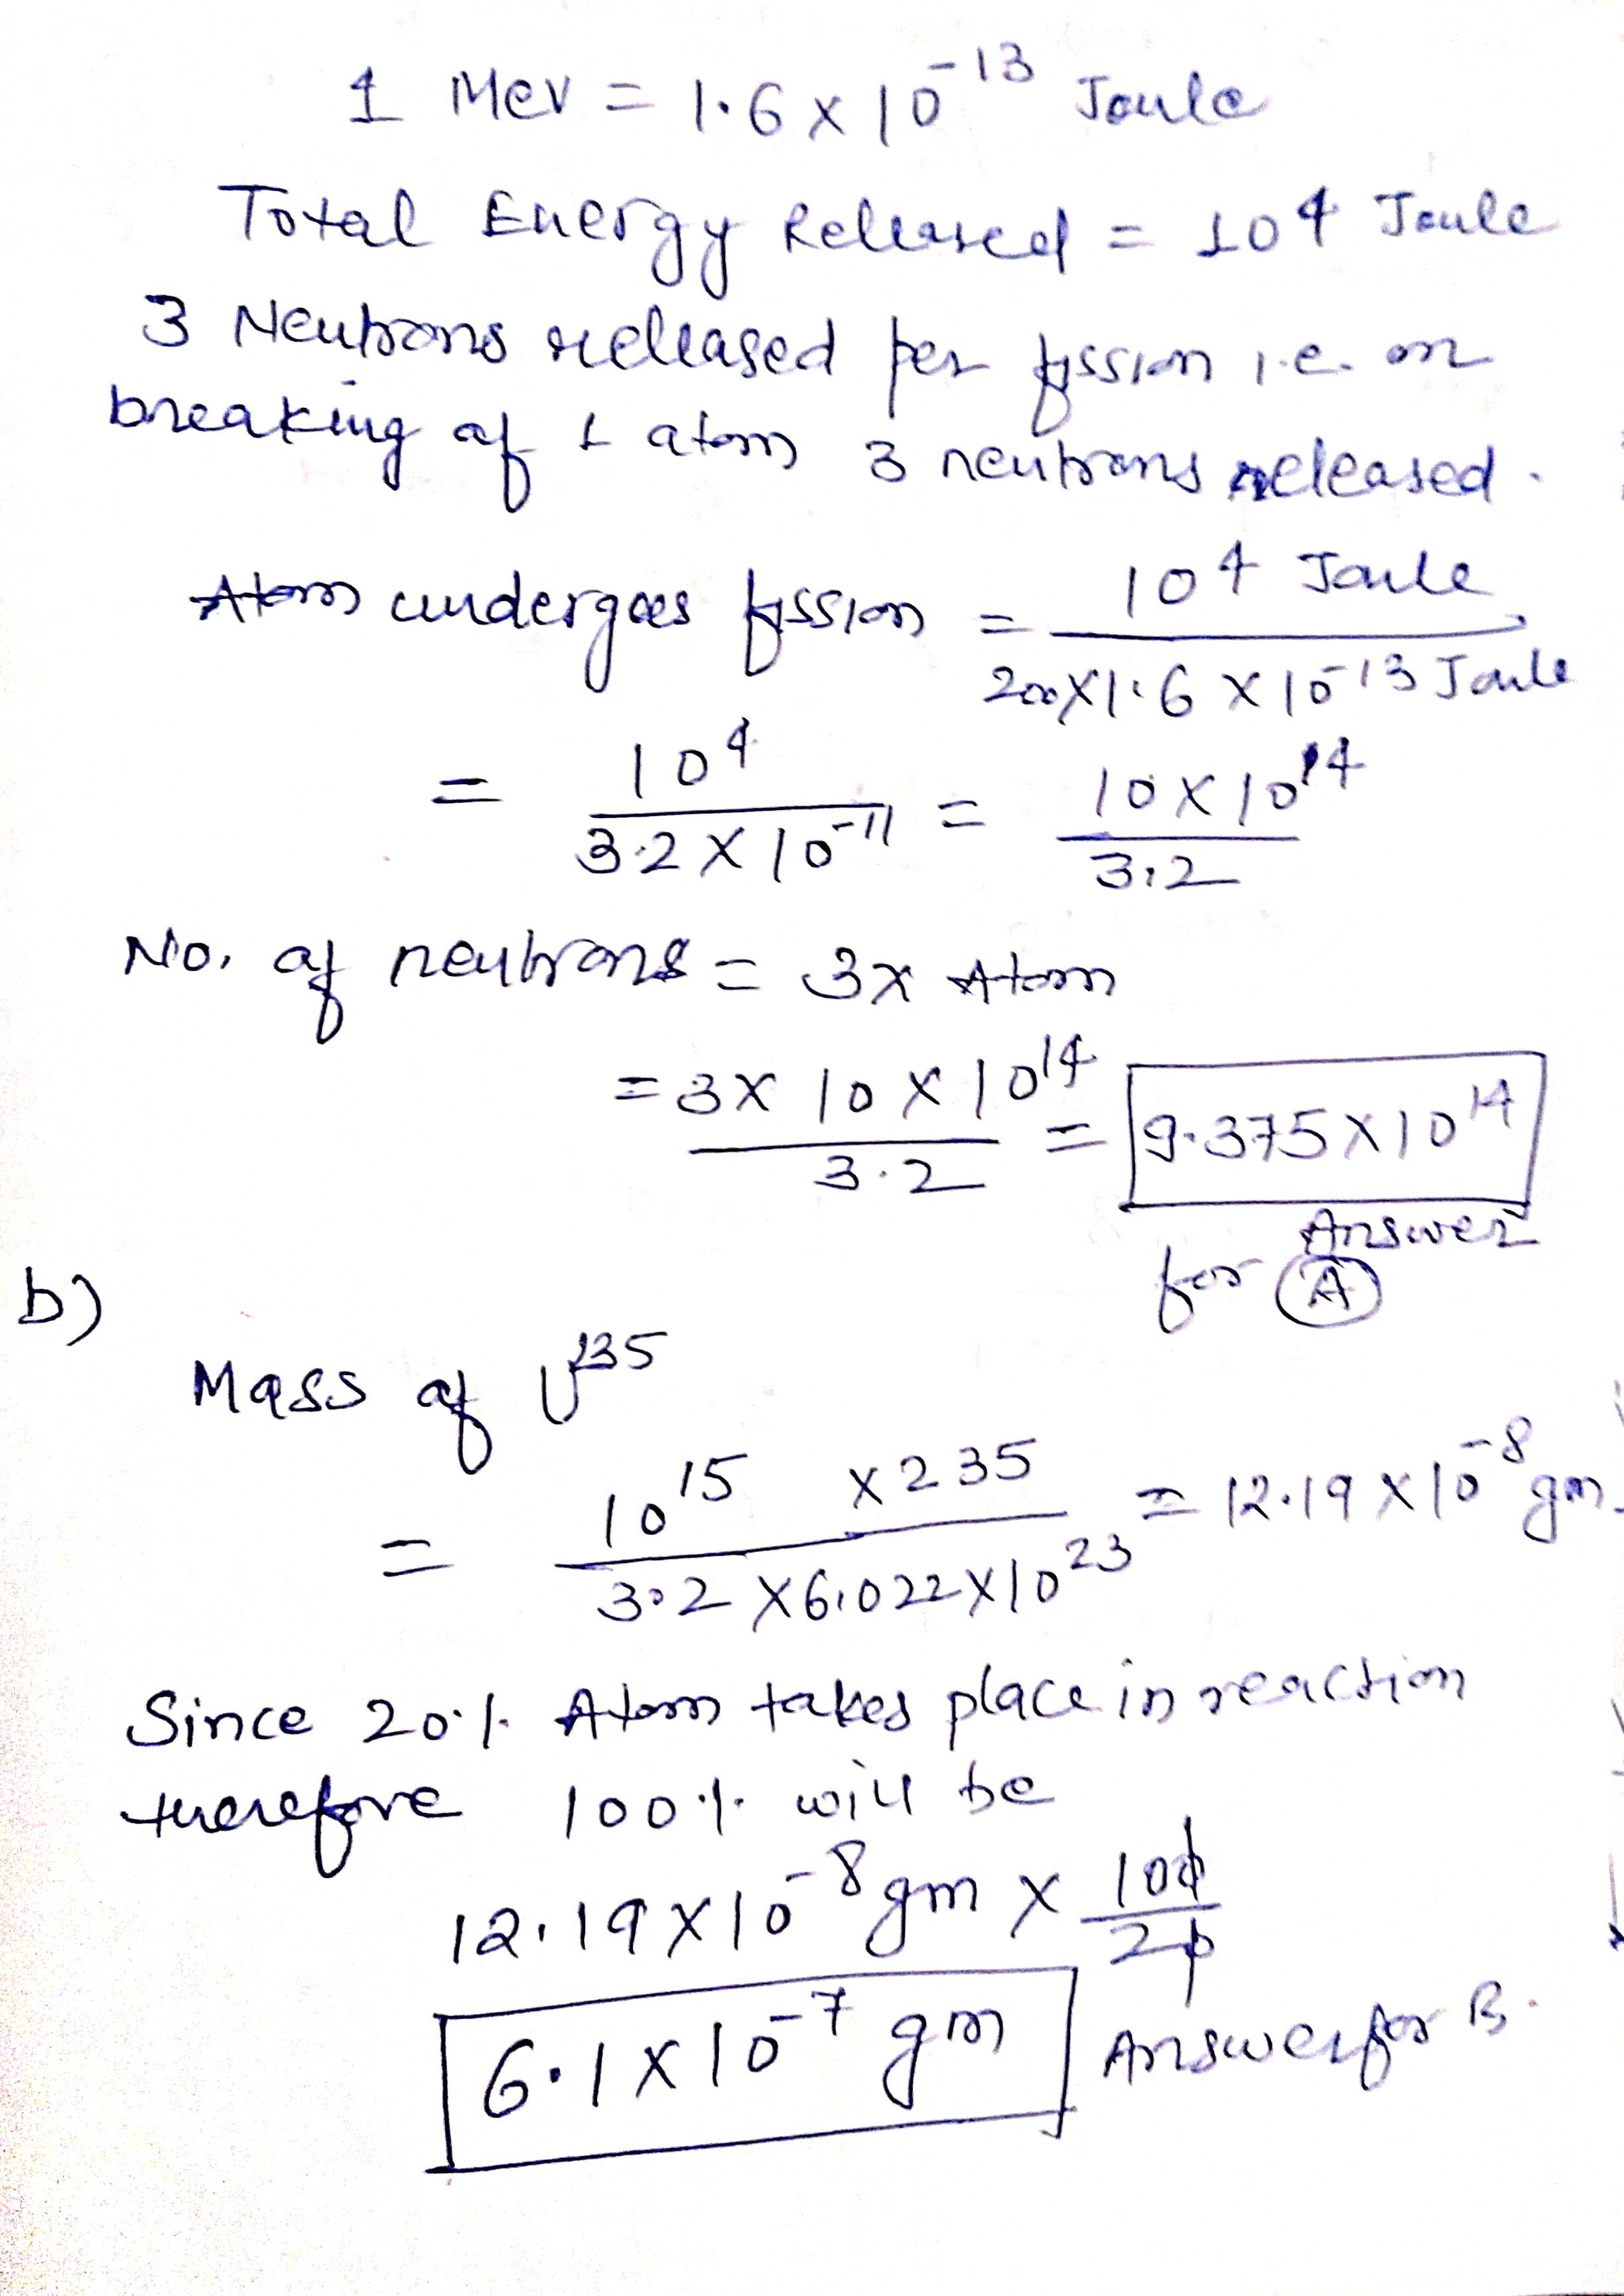 1 Mev = 1.6 x 10^-13 Joule
Total Energy Released = 10^4 Joule
3 Neutrons released per fission i.e. on
breaking of 1 atom 3 neutrons released.
Atom undergoes fission = 10^4 Joule / 200 x 1.6 x 10^-13 Joule
= 10^4 / 3.2 x 10^-11 = 10 x 10^14 / 3.2
No. of neutrons = 3x Atom
= 3 x 10 x 10^14 / 3.2 = 9.375 x 10^14
Answer
for A
b)
Mass of U^235
= 10^15 x 235 / 3.2 x 6.022 x 10^23 = 12.19 x 10^-8 gm.
Since 20% Atom takes place in reaction
therefore 100% will be
12.19 x 10^-8 gm x 100/20
6.1 x 10^-7 gm Answer for B.